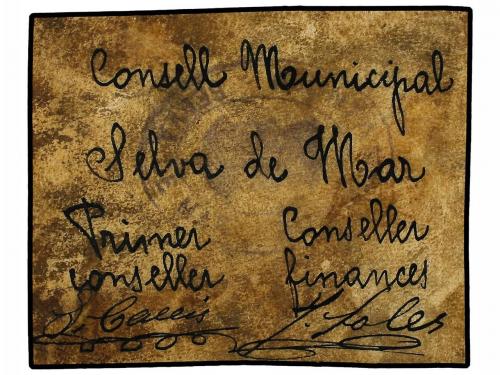 Consell Municipal
Selva de Mar
Primer Conseller
conseller finances